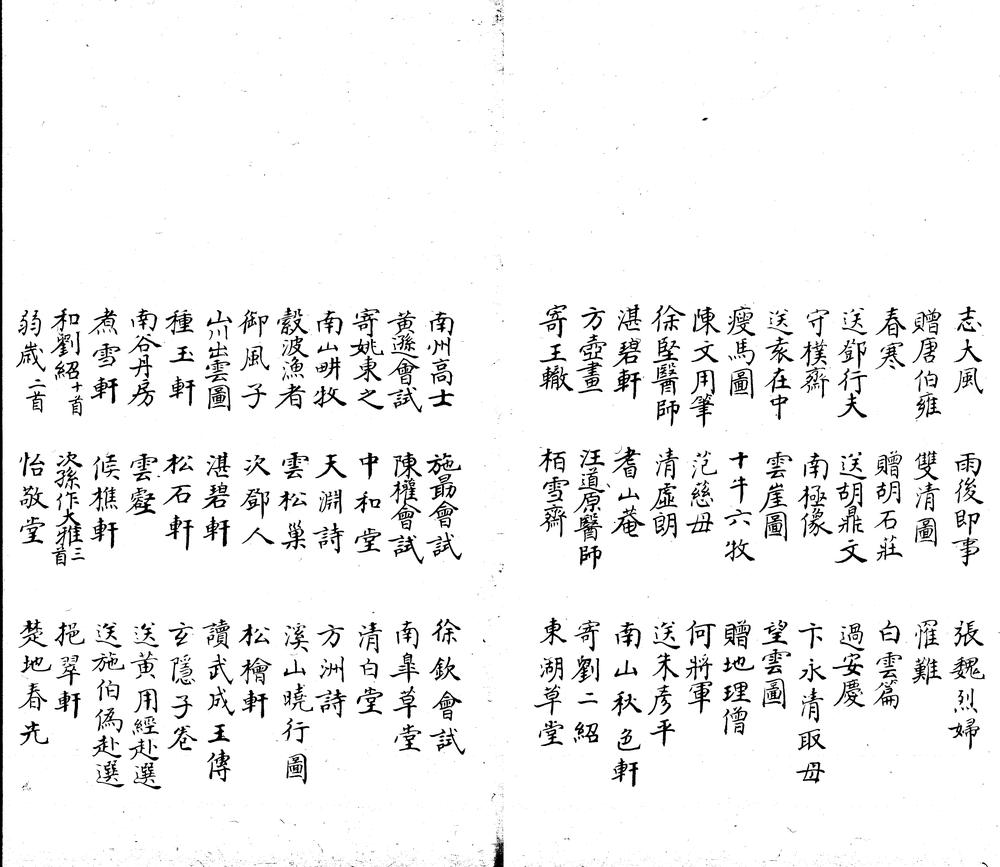 志大風　雨後即事　張魏烈婦
贈唐伯雍　雙清圖　罹難
春寒　贈胡石莊　白雲篇
送鄧行夫　送胡鼎文　過安慶
守樸齋　南極像　卞永清取毋
送袁在中　雲崖圖　望雲圖
瘦馬圖　十牛六牧　贈地理僧
陳文用筆　范慈毋　何將軍
徐堅醫師　清虛朗　送朱彥平
湛碧軒　耆山菴　南山秋色軒
方壺畫　汪道原醫師　寄劉二紹
寄王轍　栢雪齋　東湖草堂
南州高士　施勗會試　徐欽會試
黃遜會試　陳欋會試　南皐草堂
寄姚東之　中和堂　清白堂
南山畊牧　天淵詩　方洲詩
縠波漁者　雲松巢　溪山曉行圖
御風子　次鄧人　松檜軒
山川出雲圖　湛碧軒　讀武成王傳
種玉軒　松石軒　玄隱子卷
南谷丹房　雲壑　送黃用經赴選
煮雪軒　侯樵軒　送施伯偽赴選
和劉紹十首　次孫作大雅三首　挹翠軒
弱歲二首　怡敬堂　楚地春先